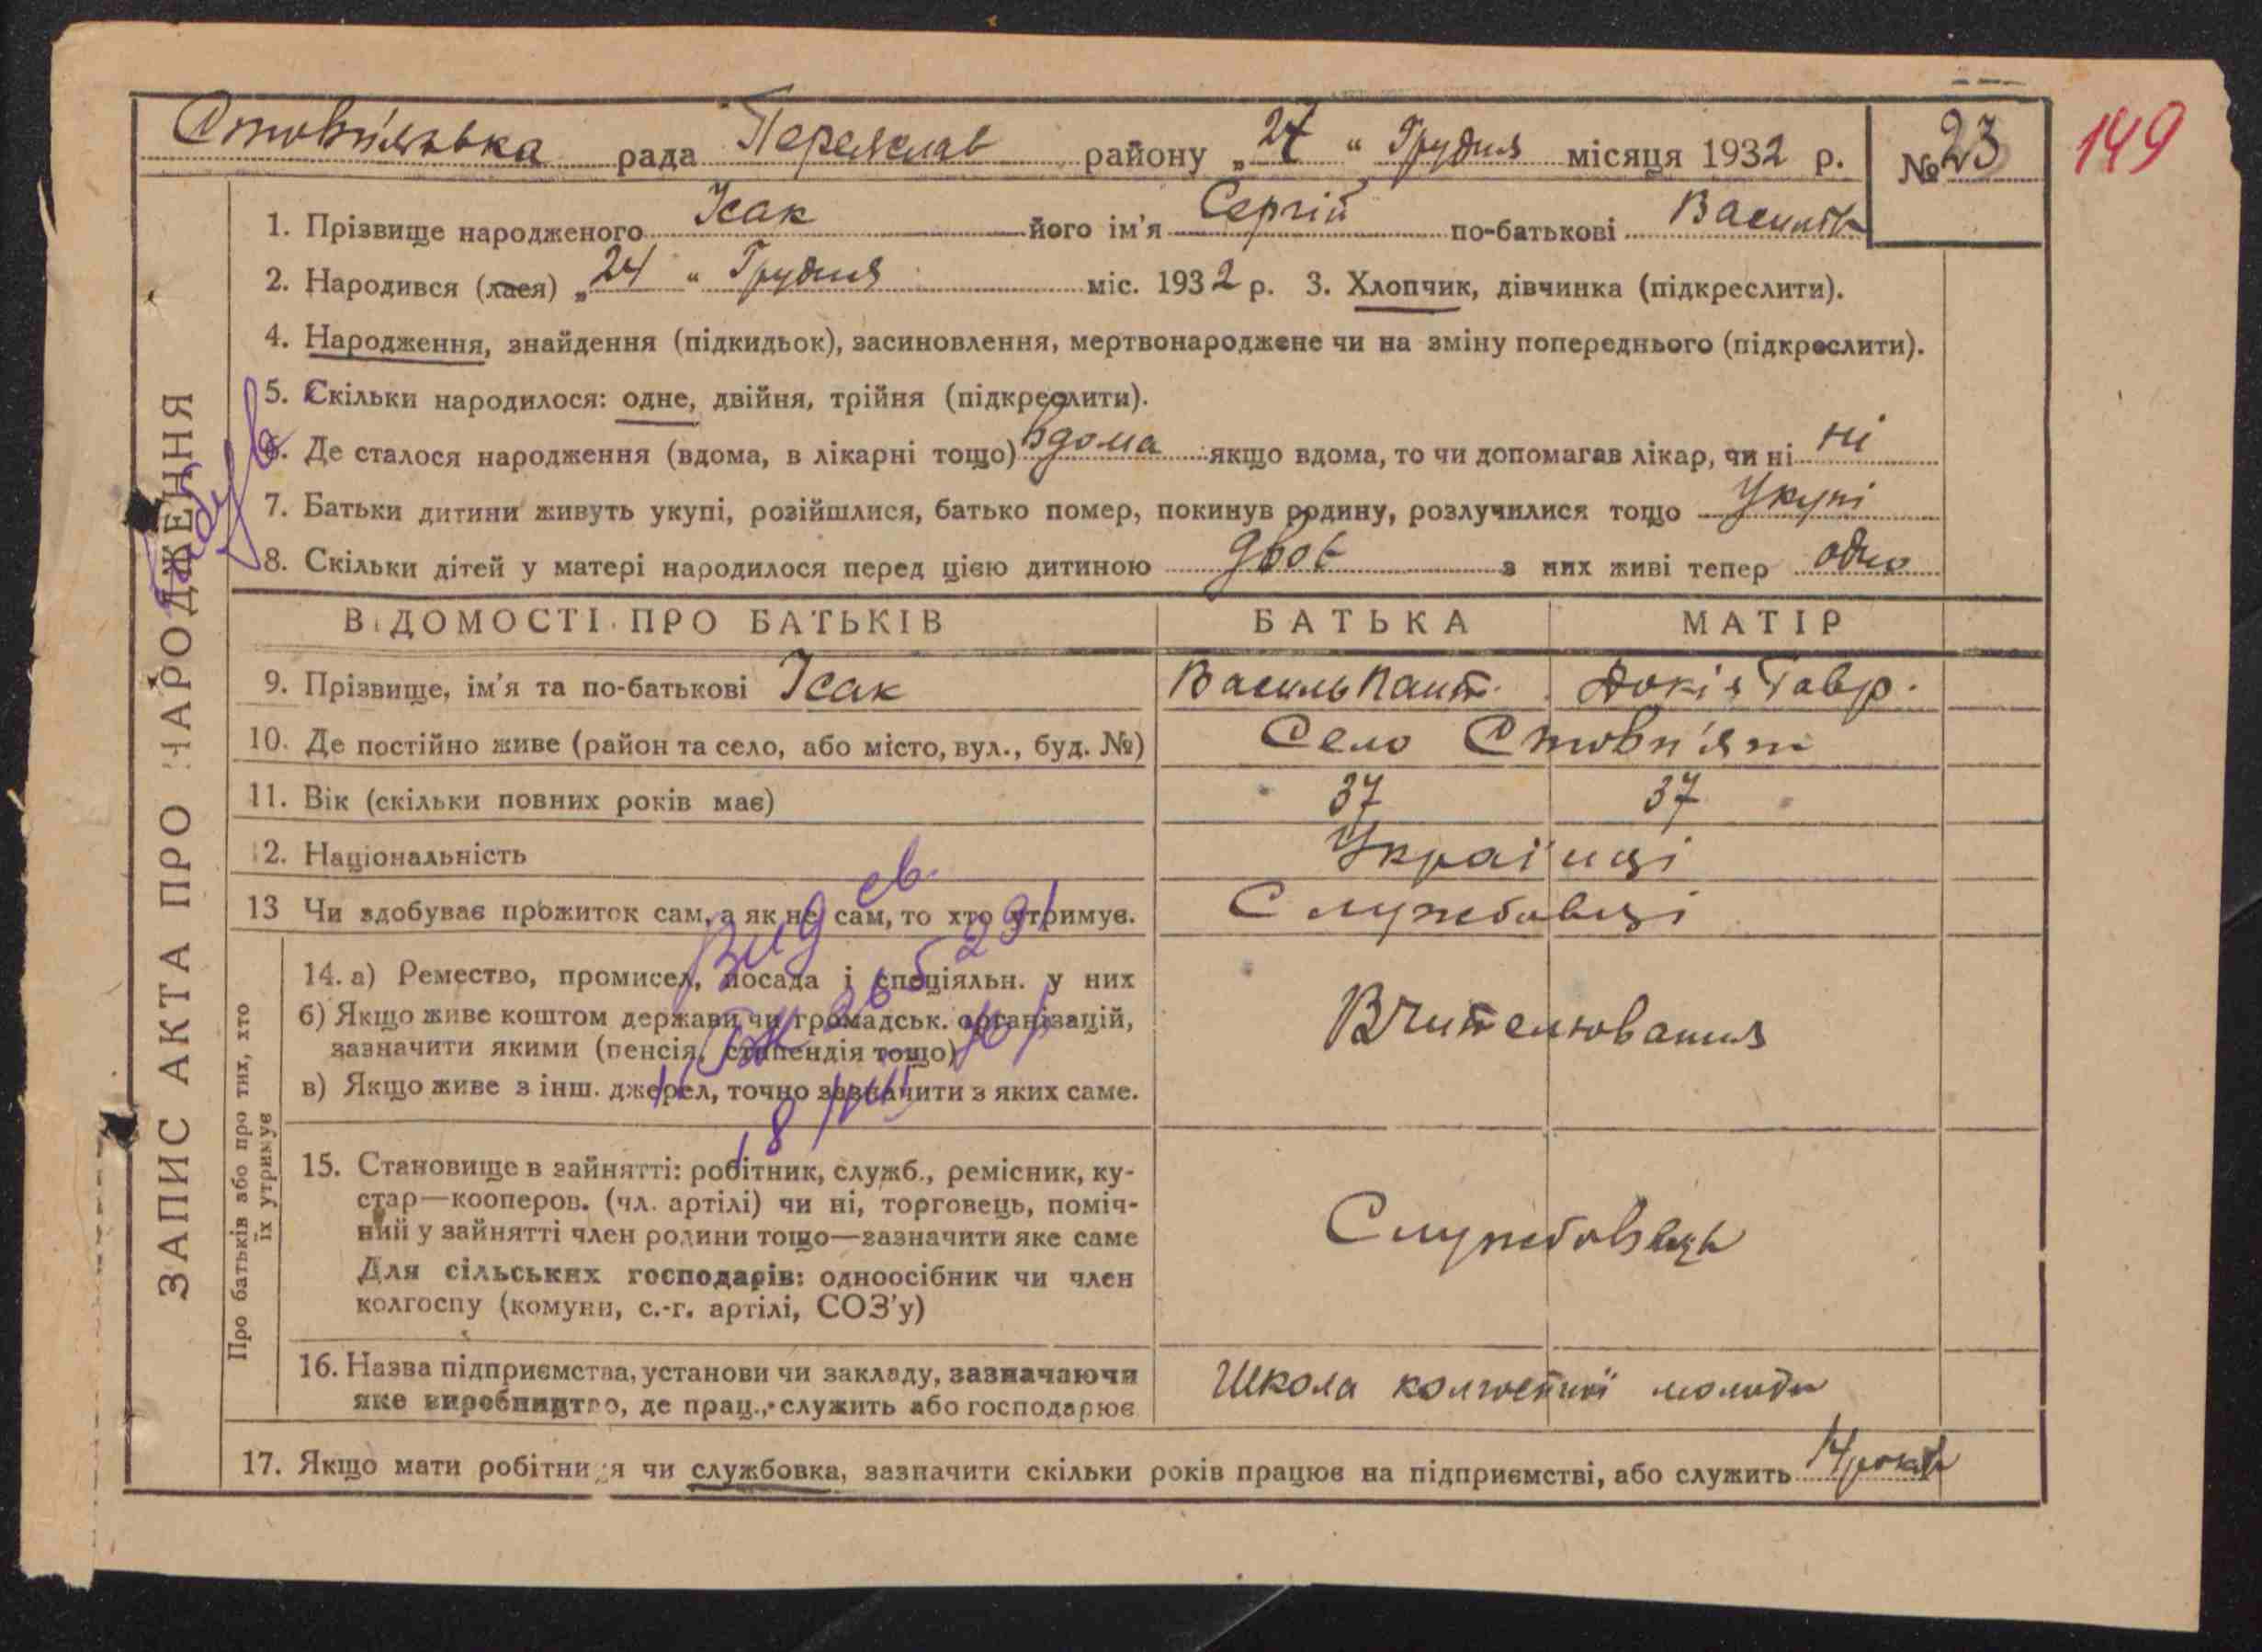 Стовп'язька рада Переяслав району „27“ Грудня місяця 1932 р. № 23
149
ЗАПИС АКТА ПРО НАРОДЖЕННЯ
1. Прізвище народженого Ісак його ім'я Сергій по-батькові Василів
2. Народився (лася) „24“ Грудня міс. 1932 р. 3. Хлопчик, дівчинка (підкреслити).
4. Народження, знайдення (підкидьок), засиновлення, мертвонароджене чи на зміну попереднього (підкреслити).
5. Скільки народилося: одне, двійня, трійня (підкреслити).
6. Де сталося народження (вдома, в лікарні тощо) Вдома якщо вдома, то чи допомагав лікар, чи ні ні
7. Батьки дитини живуть укупі, розійшлися, батько помер, покинув родину, розлучилися тощо Укупі
8. Скільки дітей у матері народилося перед цією дитиною двоє з них живі тепер одно
ВІДОМОСТІ ПРО БАТЬКІВ БАТЬКА МАТІР
9. Прізвище, ім'я та по-батькові Ісак Василь Пант. Докія Гавр.
10. Де постійно живе (район та село, або місто, вул., буд. №) Село Стовп'яги
11. Вік (скільки повних років має) 37 37
12. Національність Українці
13 Чи здобуває прожиток сам, а як не сам, то хто утримує. Службовці
Про батьків або про тих, хто
їх утримує
14. а) Ремество, промисел, посада і спеціяльн. у них
б) Якщо живе коштом держави чи громадськ. організацій,
зазначити якими (пенсія, стипендія тощо)
в) Якщо живе з інш. джерел, точно зазначити з яких саме.
Вчителювання
15. Становище в зайнятті: робітник, служб., ремісник, ку-
стар—кооперов. (чл. артілі) чи ні, торговець, поміч-
ний у зайнятті член родини тощо—зазначити яке саме
Для сільських господарів: одноосібник чи член
колгоспу (комуни, с.-г. артілі, СОЗ'у)
Службовець
16. Назва підприємства, установи чи закладу, зазначаючи
яке виробництво, де прац., служить або господарює
Школа колгоспної молоди
17. Якщо мати робітниця чи службовка, зазначити скільки років працює на підприємстві, або служить 14 років
Вид св.